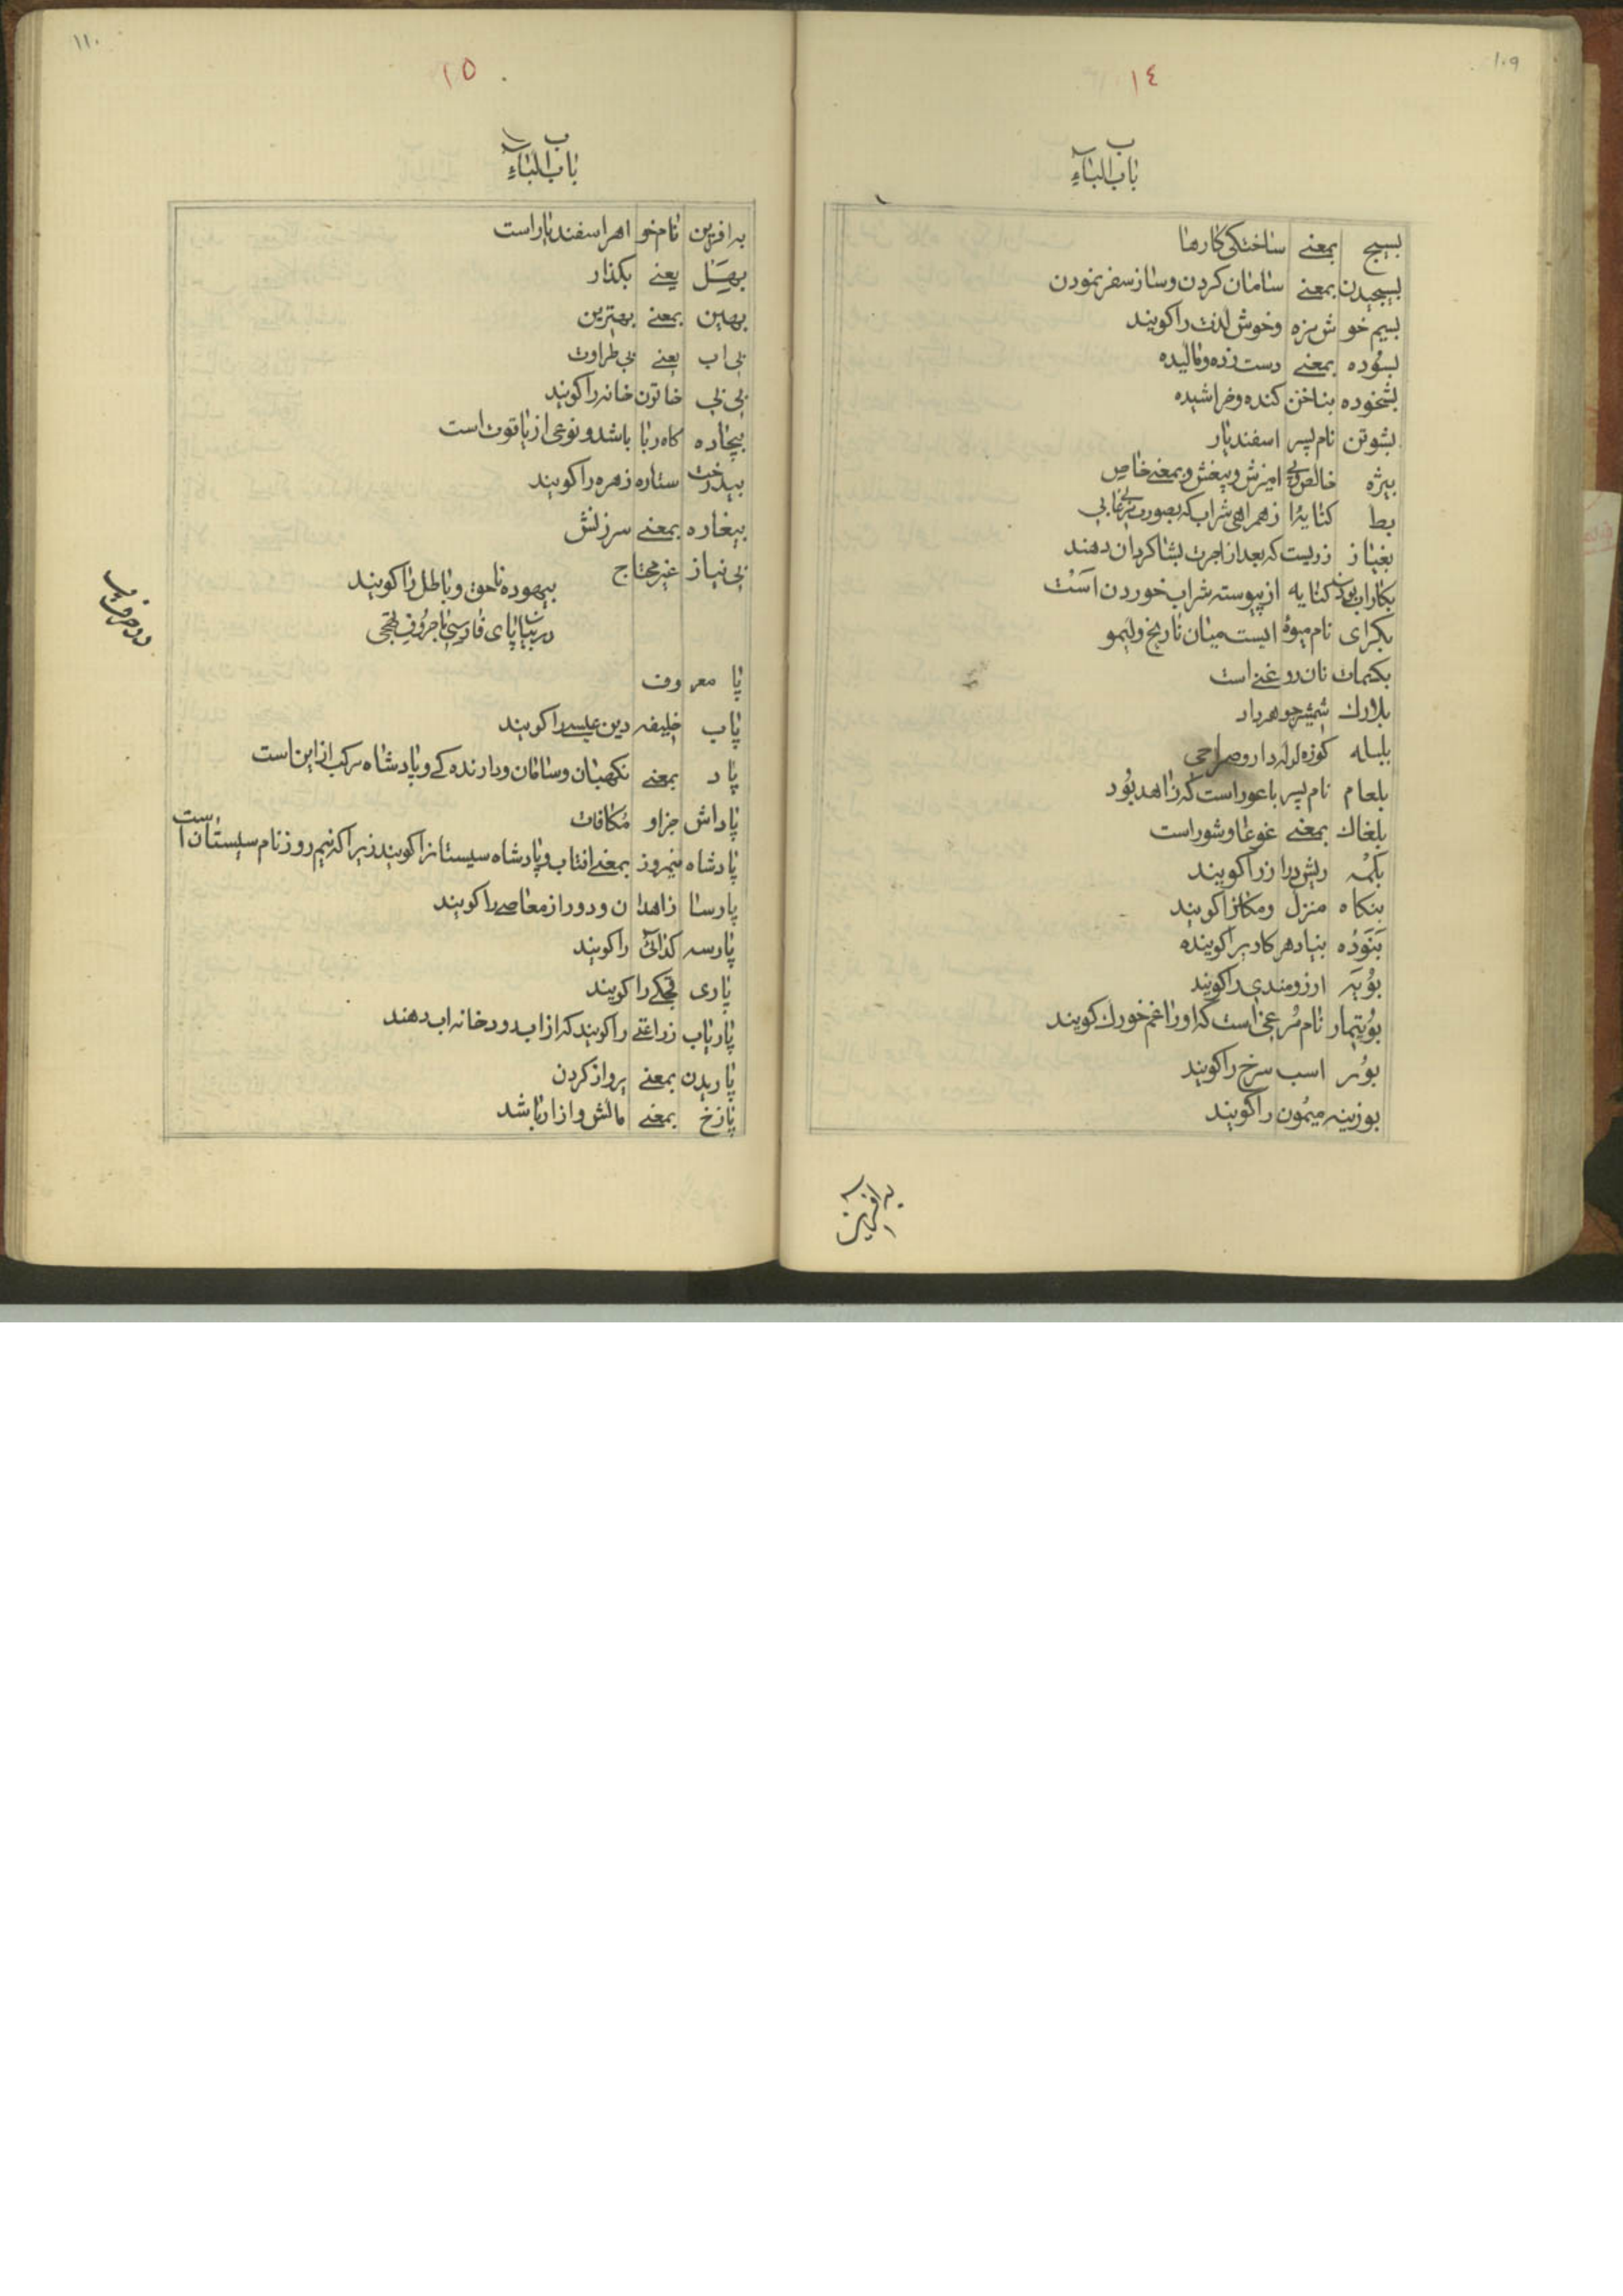 ١٠٩
١٤
ب
باب البآء
بسیج بمعنے ساختکی کارها
بسیجیدن بمعنے سامان کردن و ساز سفر نمودن
بسیم خوش مزه و خوش لذت را کویند
بسوده بمعنے دست زده و مالیده
بشخوده بناخن کنده و خراشیده
بشوتن نام پسر اسفندیار
بیژه خالص و بی امیزش و بیغش و بمعنے خاص
بط کنایه از همراهی شراب که بصورت
بغیاز زریست که بعد از اجرت بشاکردان دهند
کنایه از پیوسته شراب خوردن است
بکرای نام میوهٔ ایست میان نارنج و لیمو
بکیمات نان روغنے است
بلارك شمشیر جوهردار
بلبله کوزه لوله دار و صراحی
بلعام نام پسر باعور است که زاهد بود
بلغاك بمعنے غوغا و شور است
بلمه ریش دراز را کویند
بنکاه منزل و مکانرا کویند
بنوره بنیاد هر کار را کوینده
بویه ارزومندی را کویند
بوتیمار نام مرغی است که اورا غم خورك کویند
بور اسب سرخ را کویند
بوزینه میمون را کویند
به افرین
١١٠
١٥
ب
باب البآء
به افرین نام خواهر اسفندیار است
بهل یعنے بکذار
بهین بمعنے بهترین
بی اب یعنے بی طراوت
بی بی خاتون خانه را کویند
بیجاده کاه ربا باشد و نوعی از یاقوت است
بیدخت ستاره زهره را کویند
بیغاره بمعنے سرزنش
بی نیاز غیر محتاج
بیهوده ناحق و باطل را کویند
در بیان پای فارسی با حروف تهجی
پا معروف
پاپ خلیفه دین عیسے را کویند
پاد بمعنے نکهبان و سامان و دارنده کے و پادشاه مرکب از این است
پاداش جزا و مکافات
پادشاه نیمروز بمعنے افتاب و پادشاه سیستانرا کویند زیرا که نیم روز نام سیستان است
پارسا زاهدان و دور از معاصے را کویند
پارسه کدائی را کویند
پاری را کویند
پاریاب زراعتے را کویند که از اب رودخانه اب دهند
پاریدن بمعنے پرواز کردن
پازخ بمعنے مالش و ازار باشد